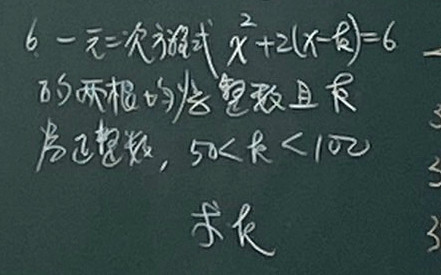 6 一元二次方程式 x²+2(x-k)=6
的兩根均為整數且k
為正整數, 50<k<100
求k